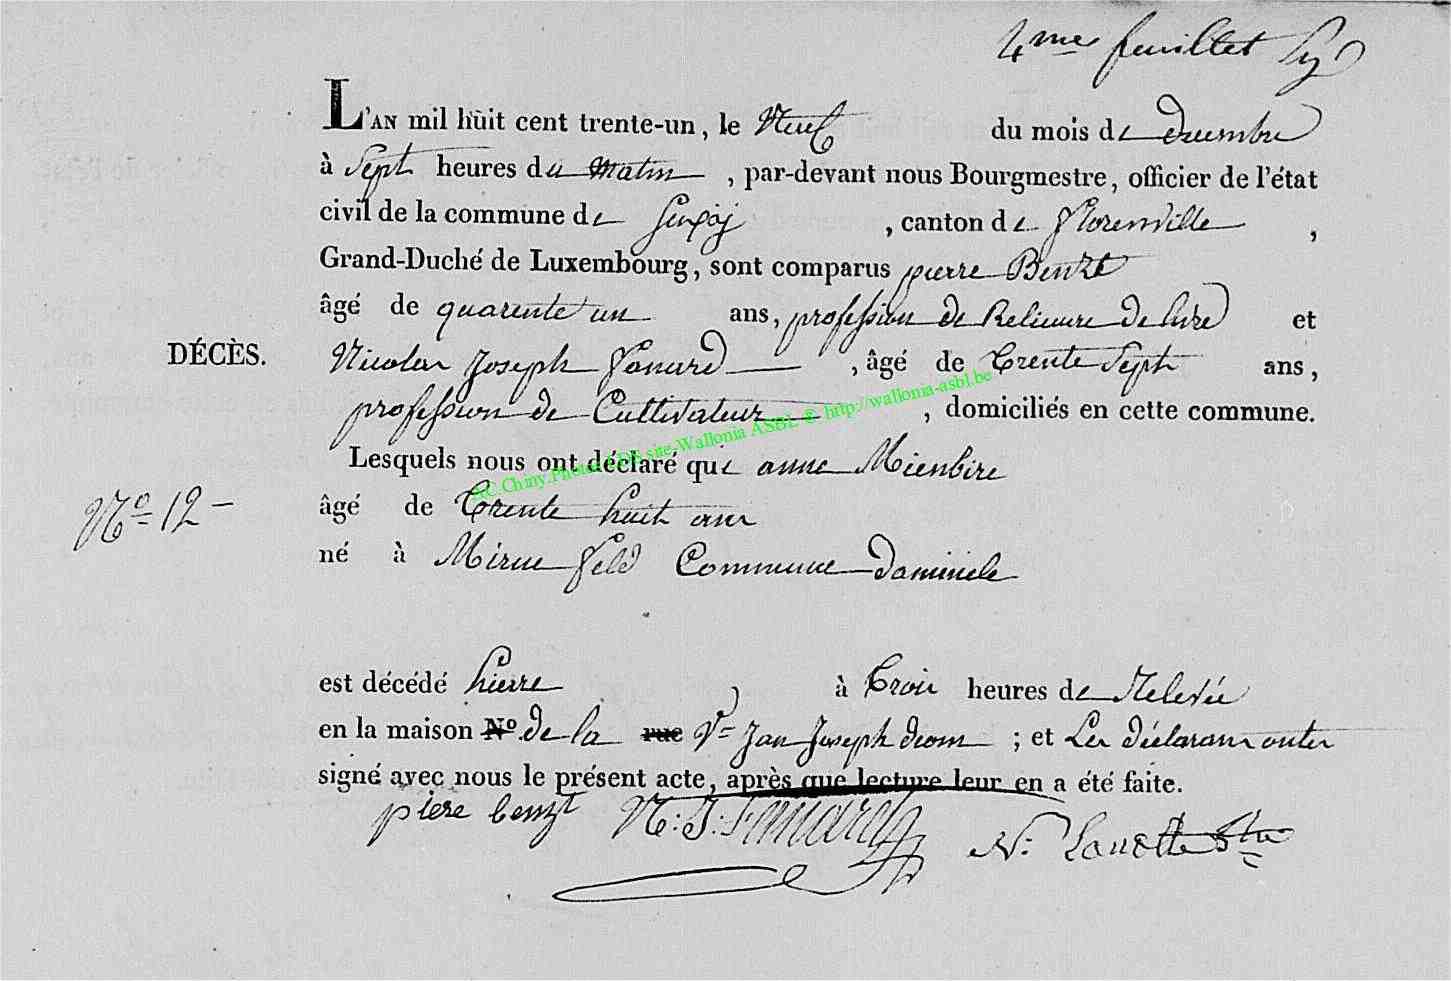 4me feuillet
L'AN mil huit cent trente-un, le Neuf du mois de decembre
à Sept heures du Matin, par-devant nous Bourgmestre, officier de l'état
civil de la commune de, canton de florenville,
Grand-Duché de Luxembourg, sont comparus pierre Benzt
âgé de quarente un ans, profession de Relieure de livre et
DÉCÈS.
Nicolas Joseph fonard, âgé de Trente Sept ans,
profession de Cultivateur, domiciliés en cette commune.
AC.Chiny.Photos LDB site-Wallonia ASBL © http://wallonia-asbl.be
Lesquels nous ont déclaré que anne Mienbire
No 12
âgé de Trente huit ans
né à feld Commune
est décédé hierre à Trois heures de Relevée
en la maison No de la rue Ve Jan Joseph diom ; et Les déclarans onts
signé avec nous le présent acte, après que lecture leur en a été faite.
piere benzt N: J: Fonard N: